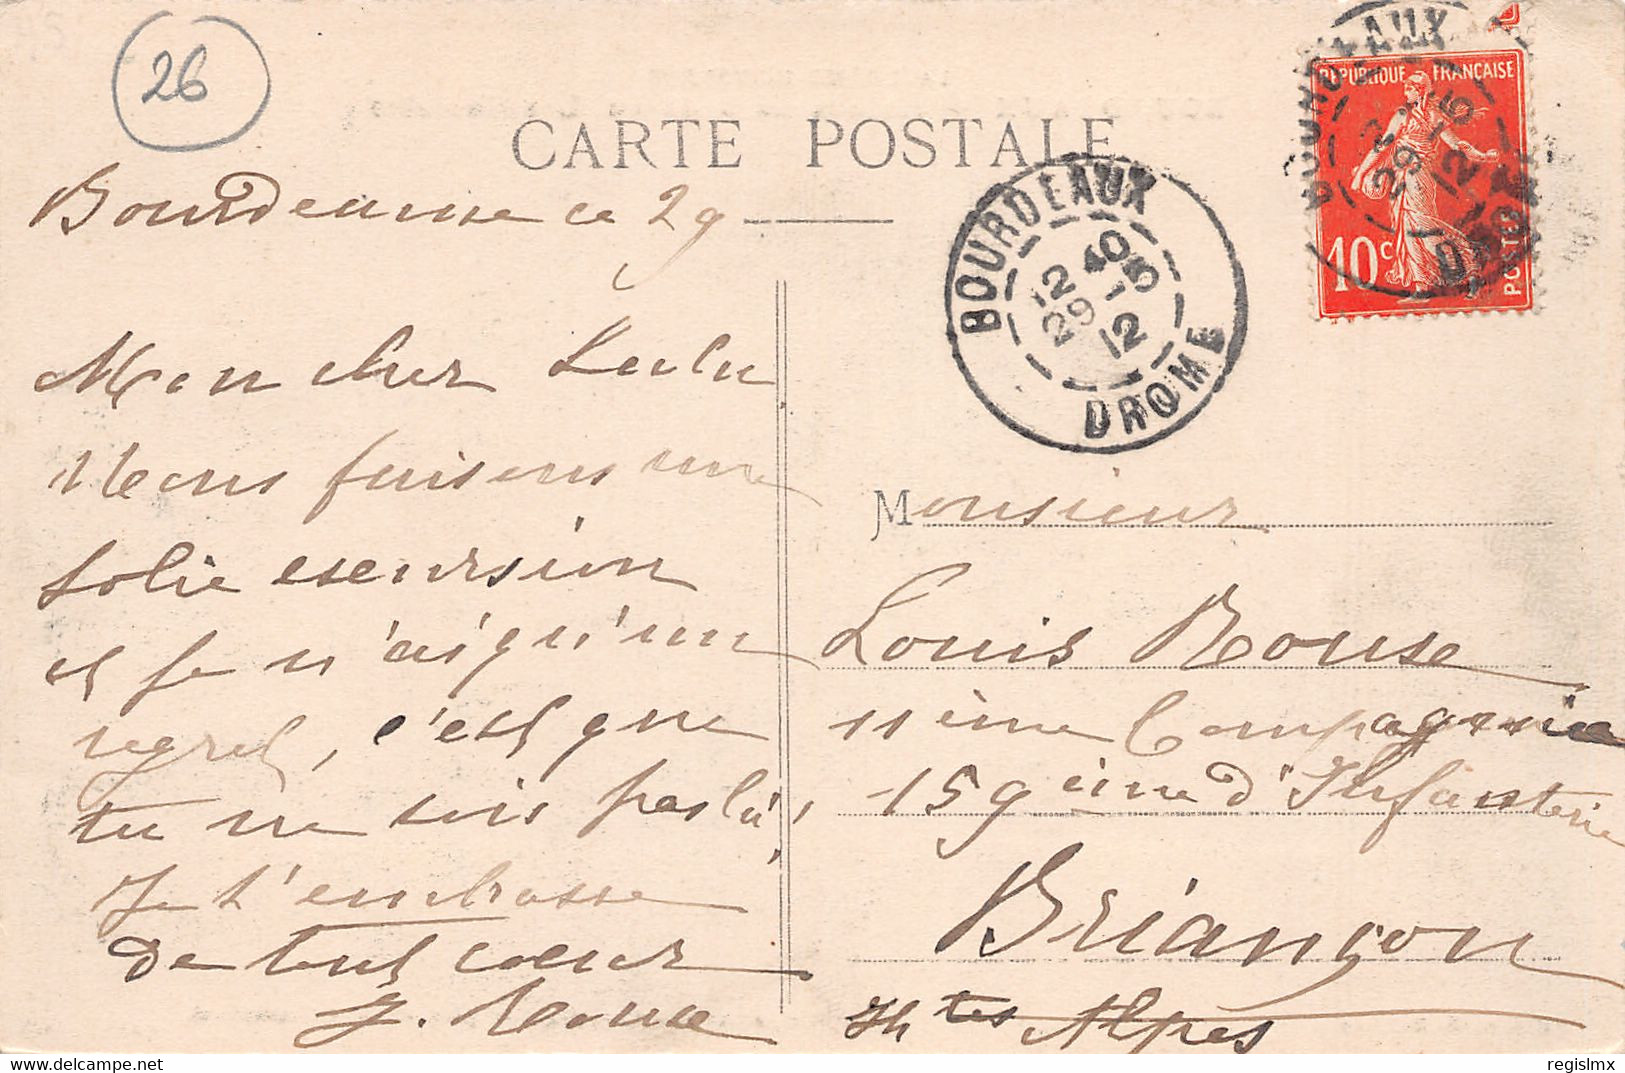 26
CARTE POSTALE
Bourdeaux ce 29
BOURDEAUX
12 40
29 -5
12
DROME
REPUBLIQUE FRANÇAISE
10c
POSTES
BOURDEAUX
29 -5
12
DROME
Mon cher Lulu
Nous faisons une
Jolie escursion
et je n'ai qu'un
regret, c'est que
tu ne sois pas là,
Je t'embrasse
de tout cœur
Monsieur
Louis
11ème Compagnie
159ème d'Infanterie
Briançon
Htes Alpes
regislmx